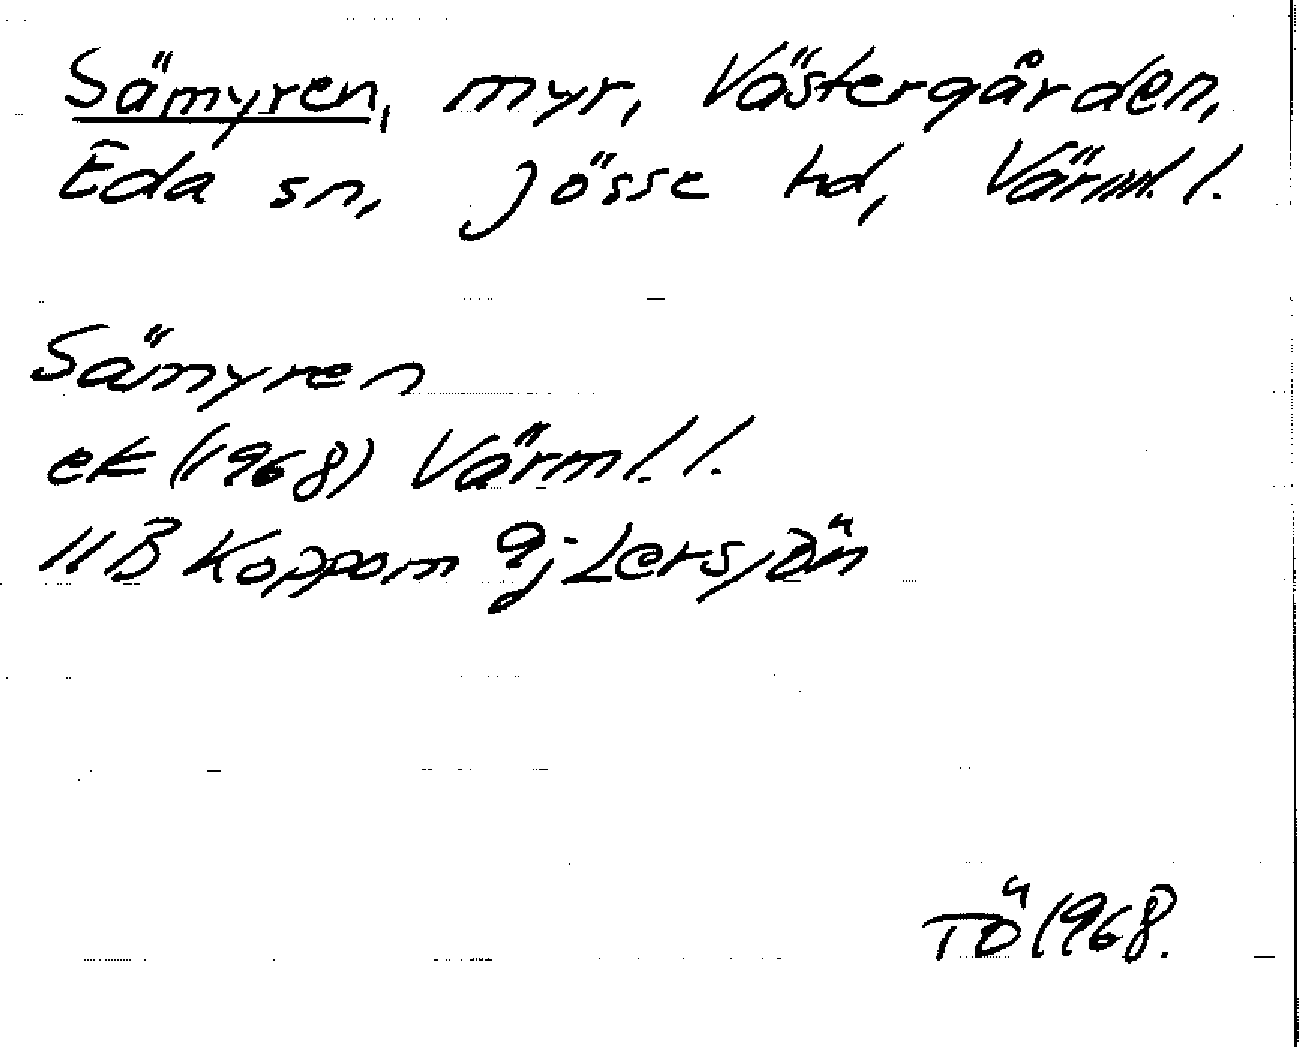 Sämyren, myr, Västergården,
Eda sn, Jösse hd, Värml. l.
Sämyren
ek (1968) Värml. l.
11B Koppom 9j Lersjön
TÖ 1968.